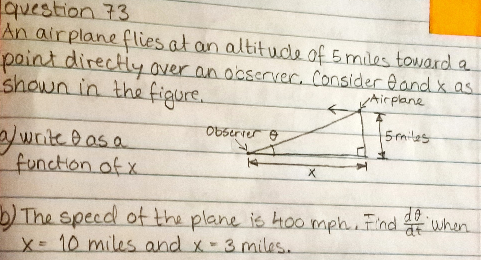 question 73
An airplane flies at an altitude of 5 miles toward a
point directly over an observer. Consider θ and x as
shown in the figure.
Airplane
Observer θ
5 miles
x
a) write θ as a
function of x
b) The speed of the plane is 400 mph. Find dθ/dt when
x = 10 miles and x = 3 miles.